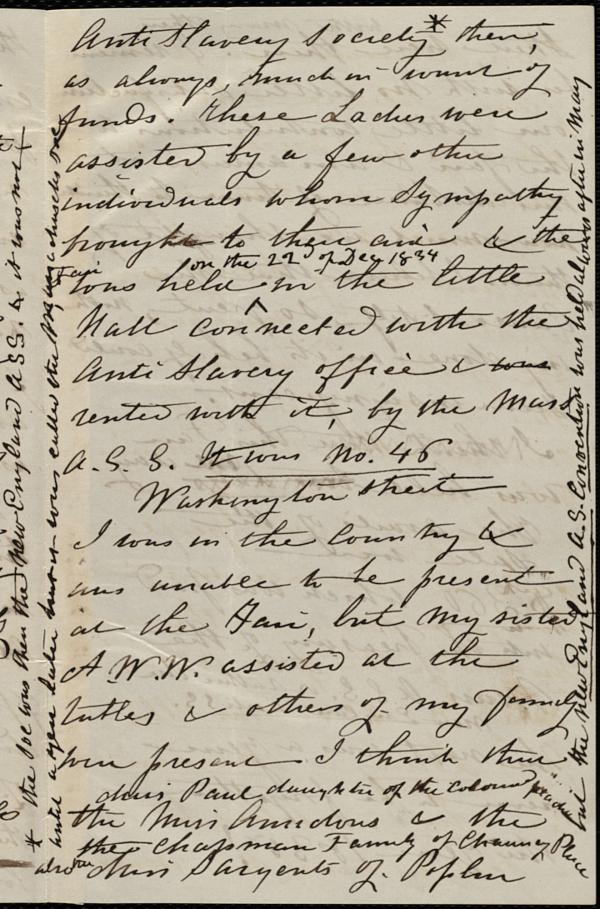 Anti Slavery Society * then,
as always, much in want of
funds. These Ladies were
assisted by a few other
individuals whom Sympathy
brought to their aid & the
Fair on the 22 of Dec 1834
was held ^ in the little
Hall connected with the
Anti Slavery office & was
rented with it, by the Mass
A. S. S. It was No. 46
Washington Street
I was in the Country &
was unable to be present
at the Fair, but my sister
A. W. W. assisted at the
tables & others of my family
were present. I think the
Miss Paul daughter of the colored preacher
the Miss Ammidons & the
the Chapman Family of Chauncy Place
also the Miss Sargents of Poplar
* the Soc was then the New England A S S. & it was not
until a year later that it was called the Massachusetts Soc
but the New England A. S. Convention was held always after in May